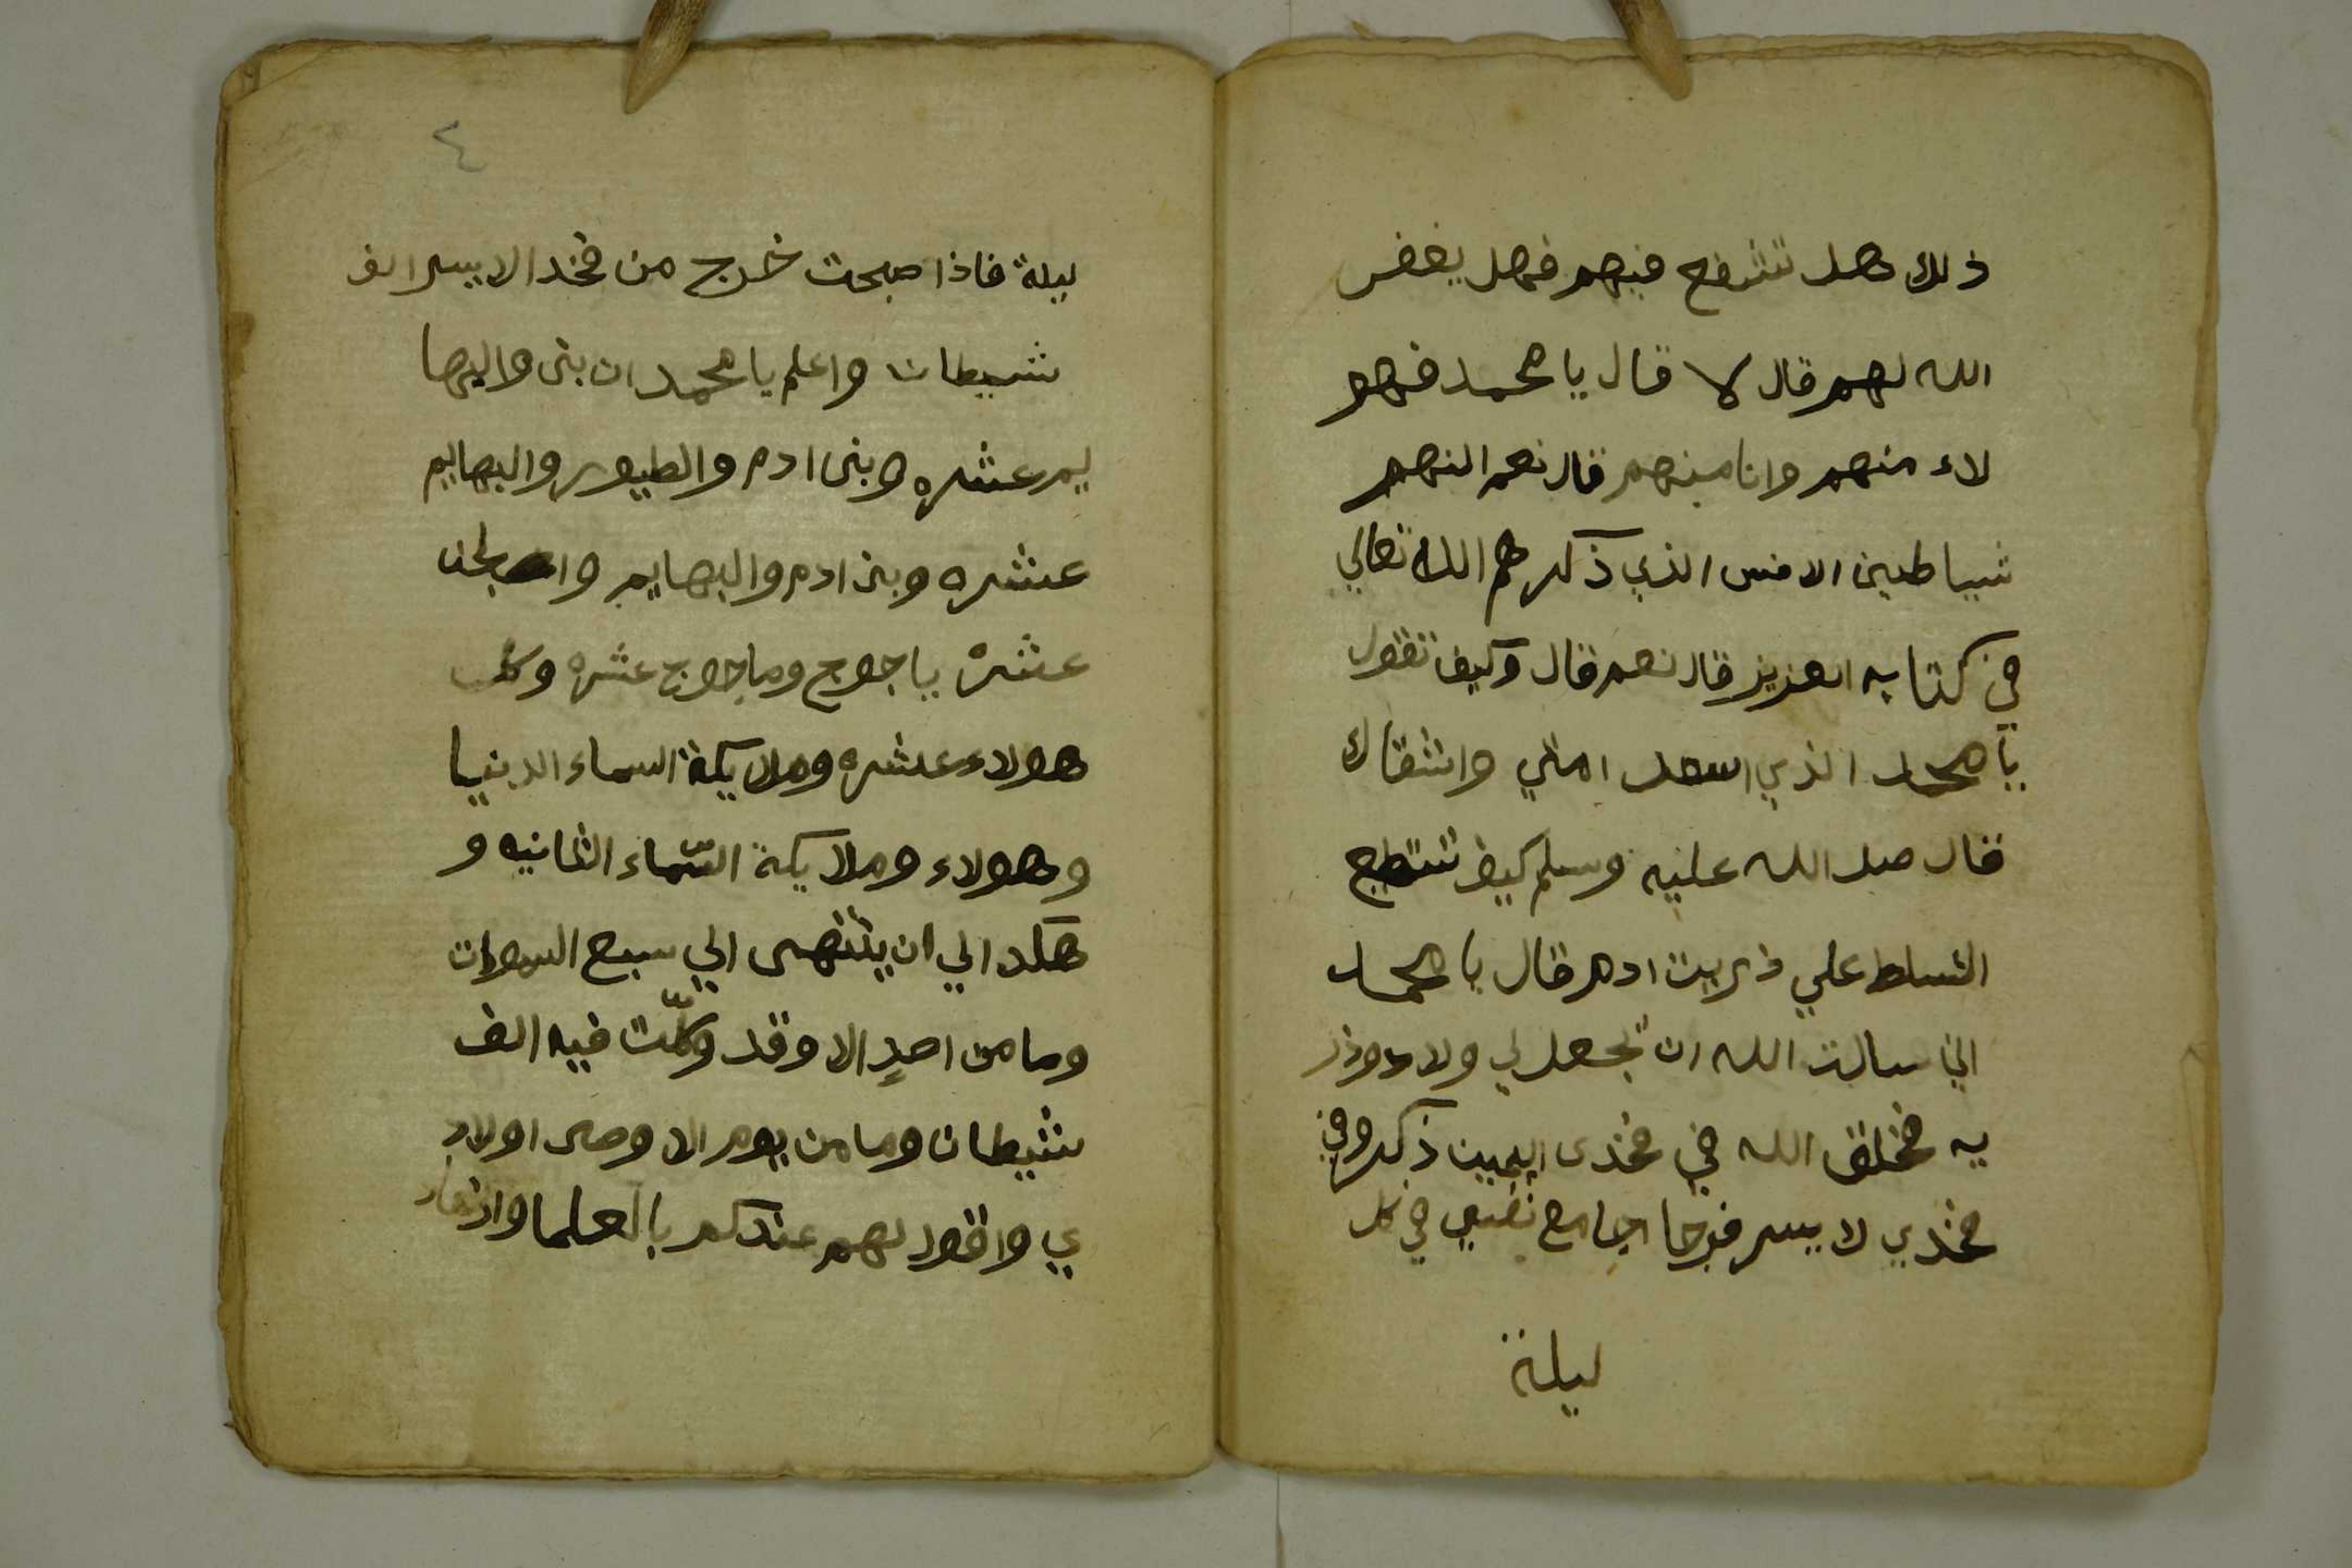 ذلك هل تشفع فيهم فهل يغفر
الله لهم قال لا قال يا محمد فهو
لاء منهم وانا منهم قال نعم انهم
شياطين الانس الذي ذكرهم الله تعالي
في كتابه العزيز قال نعم قال وكيف تقول
يا محمد الذي اسعد امتي واشقاك
فقال صلى الله عليه وسلم كيف تستطع
التسلط علي ذريت ادم قال يا محمد
اني سالت الله ان يجعل لي ولاد وذر
يه فخلق الله في فخدى اليمين ذكر وفي
فخذي لا يسر فرجا اجامع نفسي في كل
ليلة
٤
ليلة فاذا صبحت خرج من فخد الايسر الف
شيطان واعلم يا محمد ان بنى والبها
يم عشره وبنى ادم والطيور والبهايم
عشره وبنى ادم والبهايم والجن
عشره ياجوج وماجوج عشره وكل
هولاء عشره وملايكة السماء الدنيا
وهولاء وملايكة السّماء الثانيه و
هكد الي ان ينتهى الي سبع السموات
وما من احدٍ الا وقد وكلّت فيه الف
شيطان وما من يوم الا وصى اولاد
ي واقول لهم عندكم بالعلما